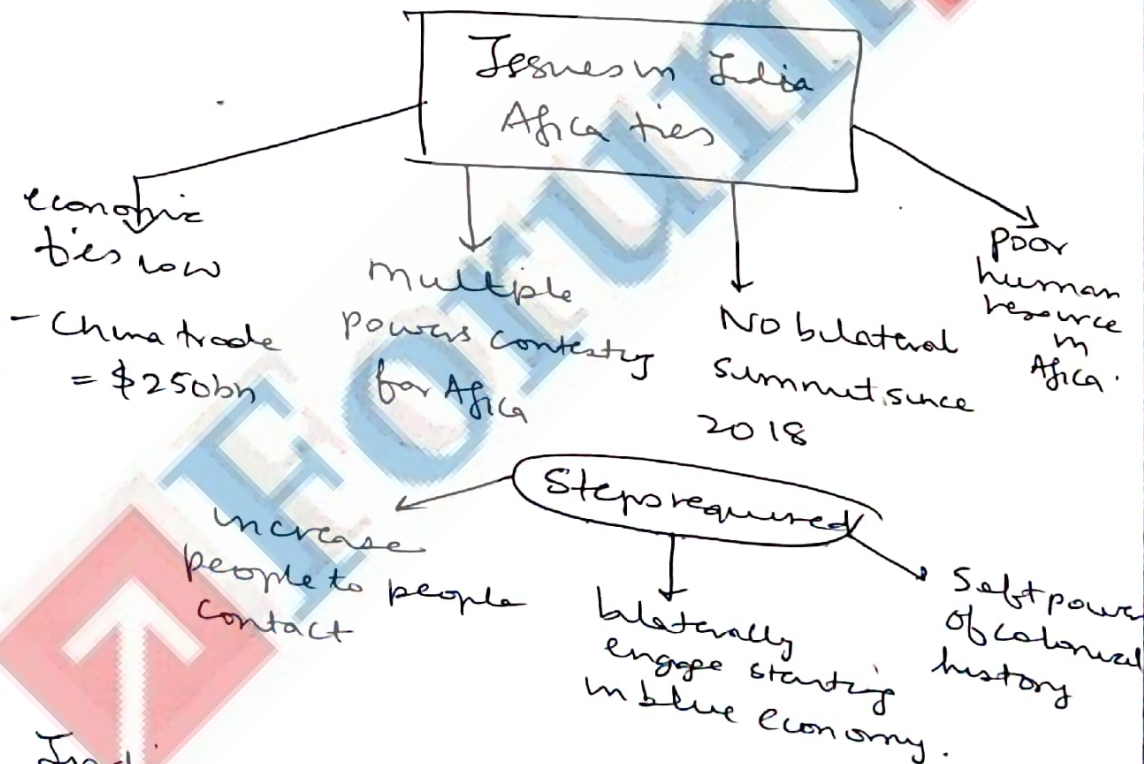 Issues in India
Africa ties
economic
ties low
- China trade
= $250bn
Multiple
powers contesting
for Africa
No bilateral
summit since
2018
poor
human
resource
in
Africa.
Steps required
increase
people to people
contact
bilaterally
engage starting
in blue economy.
Soft power
of colonial
history
Forum